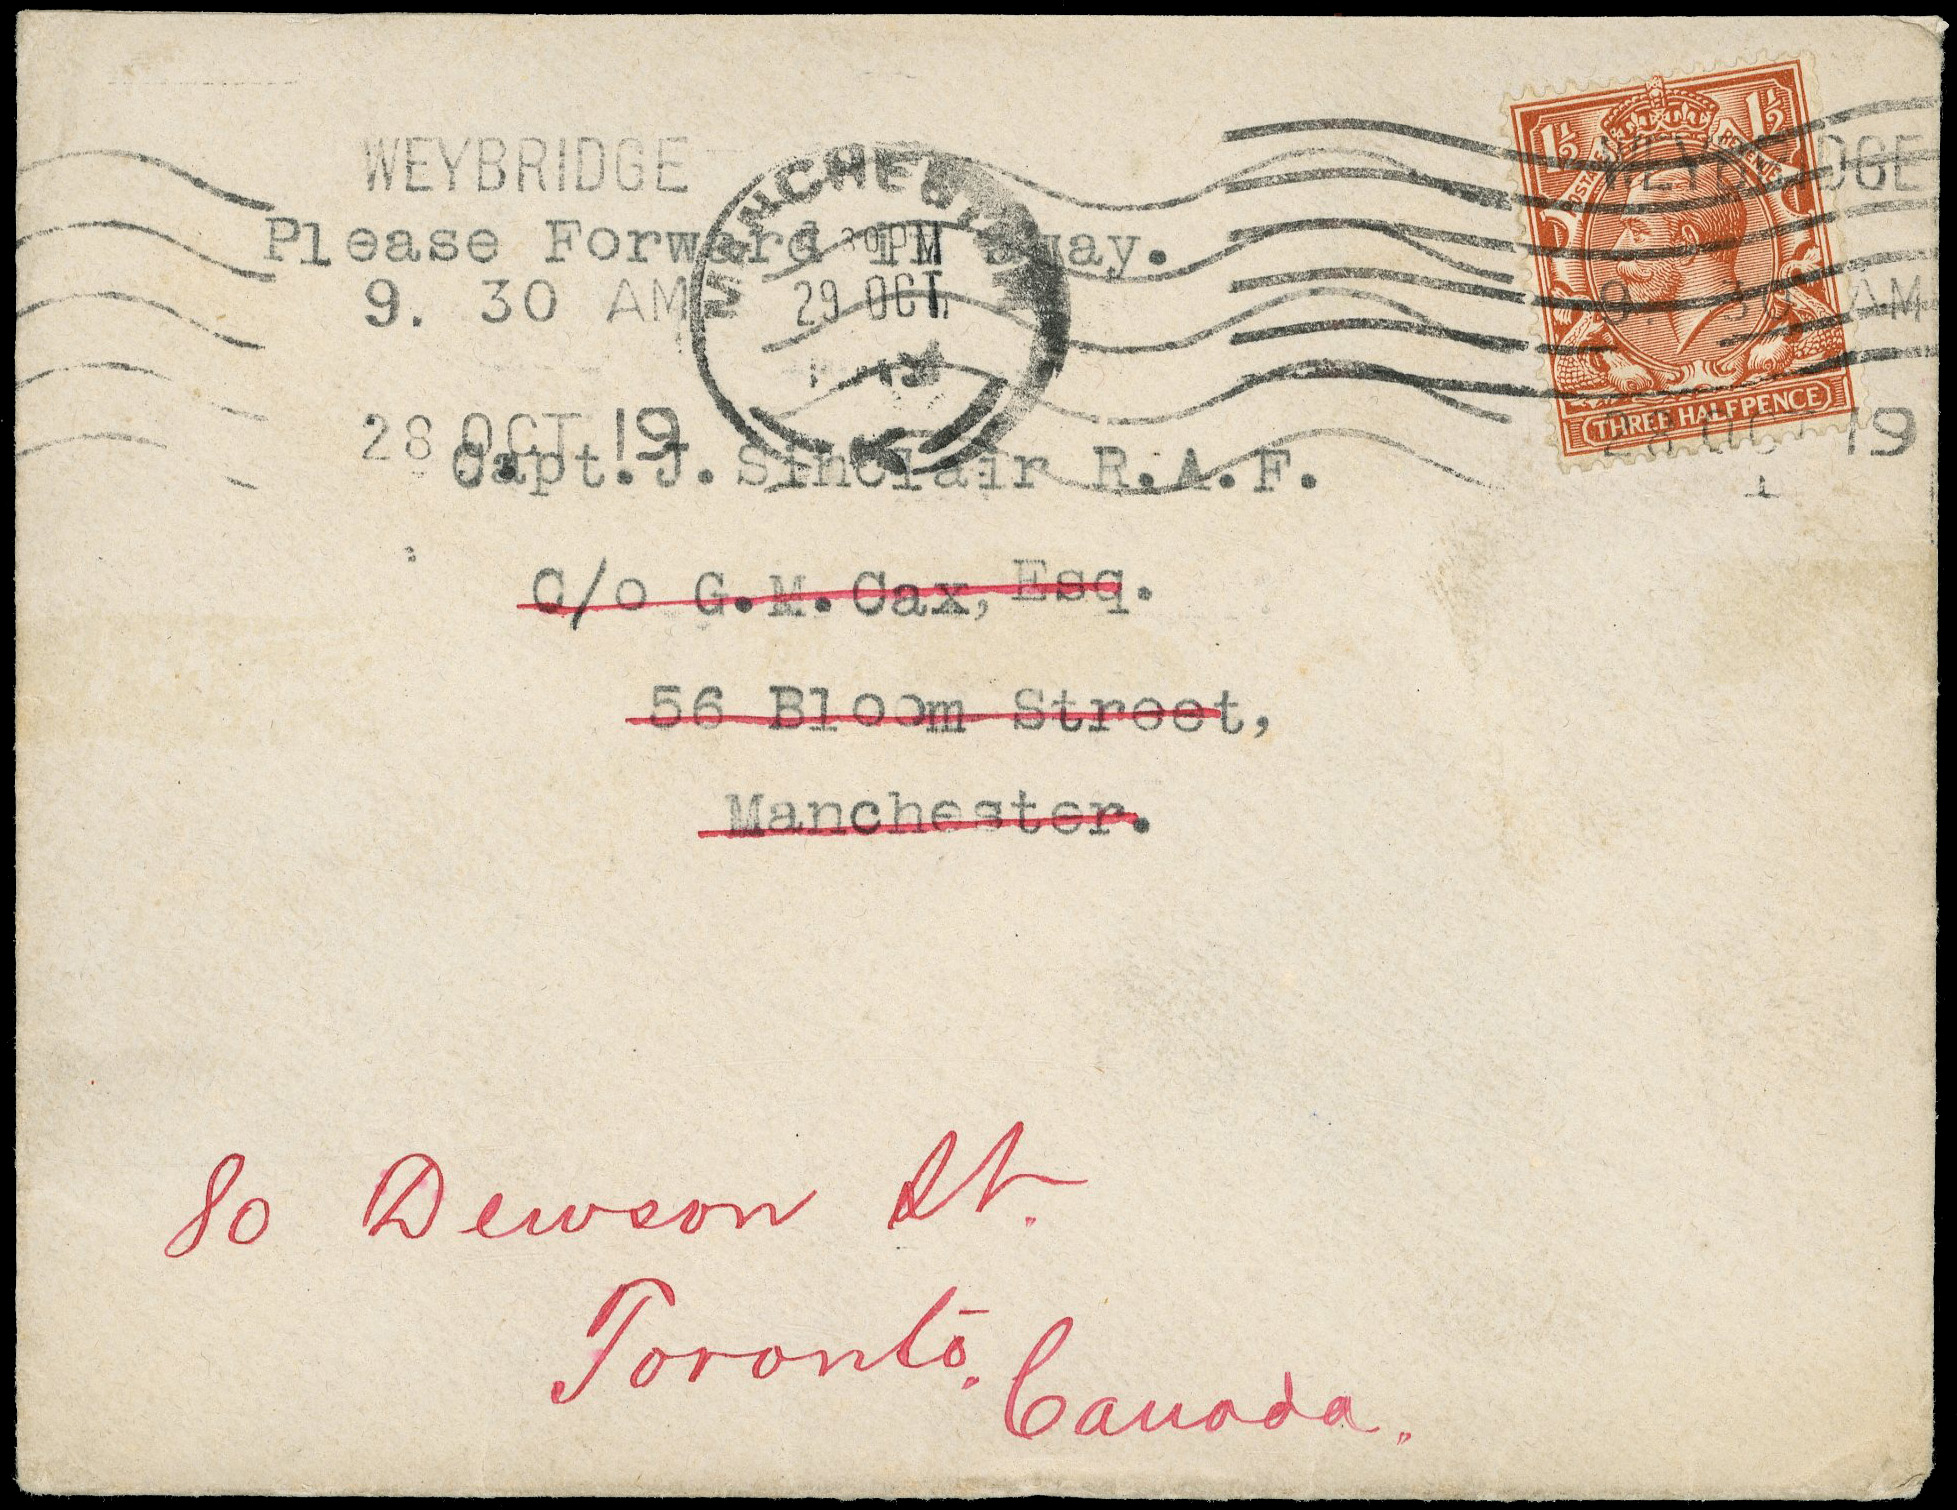 WEYBRIDGE
MANCHESTER
1½ 1½
POSTAGE REVENUE
WEYBRIDGE
Please Forward away.
30 PM
9. 30 AM
29 OCT.
9. 30 AM
28 OCT 19
THREE HALFPENCE
28 OCT 19
1
Capt. J. Sinclair R.A.F.
C/o G.M.Cax, Esq.
56 Bloom Street,
Manchester.
80 Dewson St.
Toronto.
Canada.